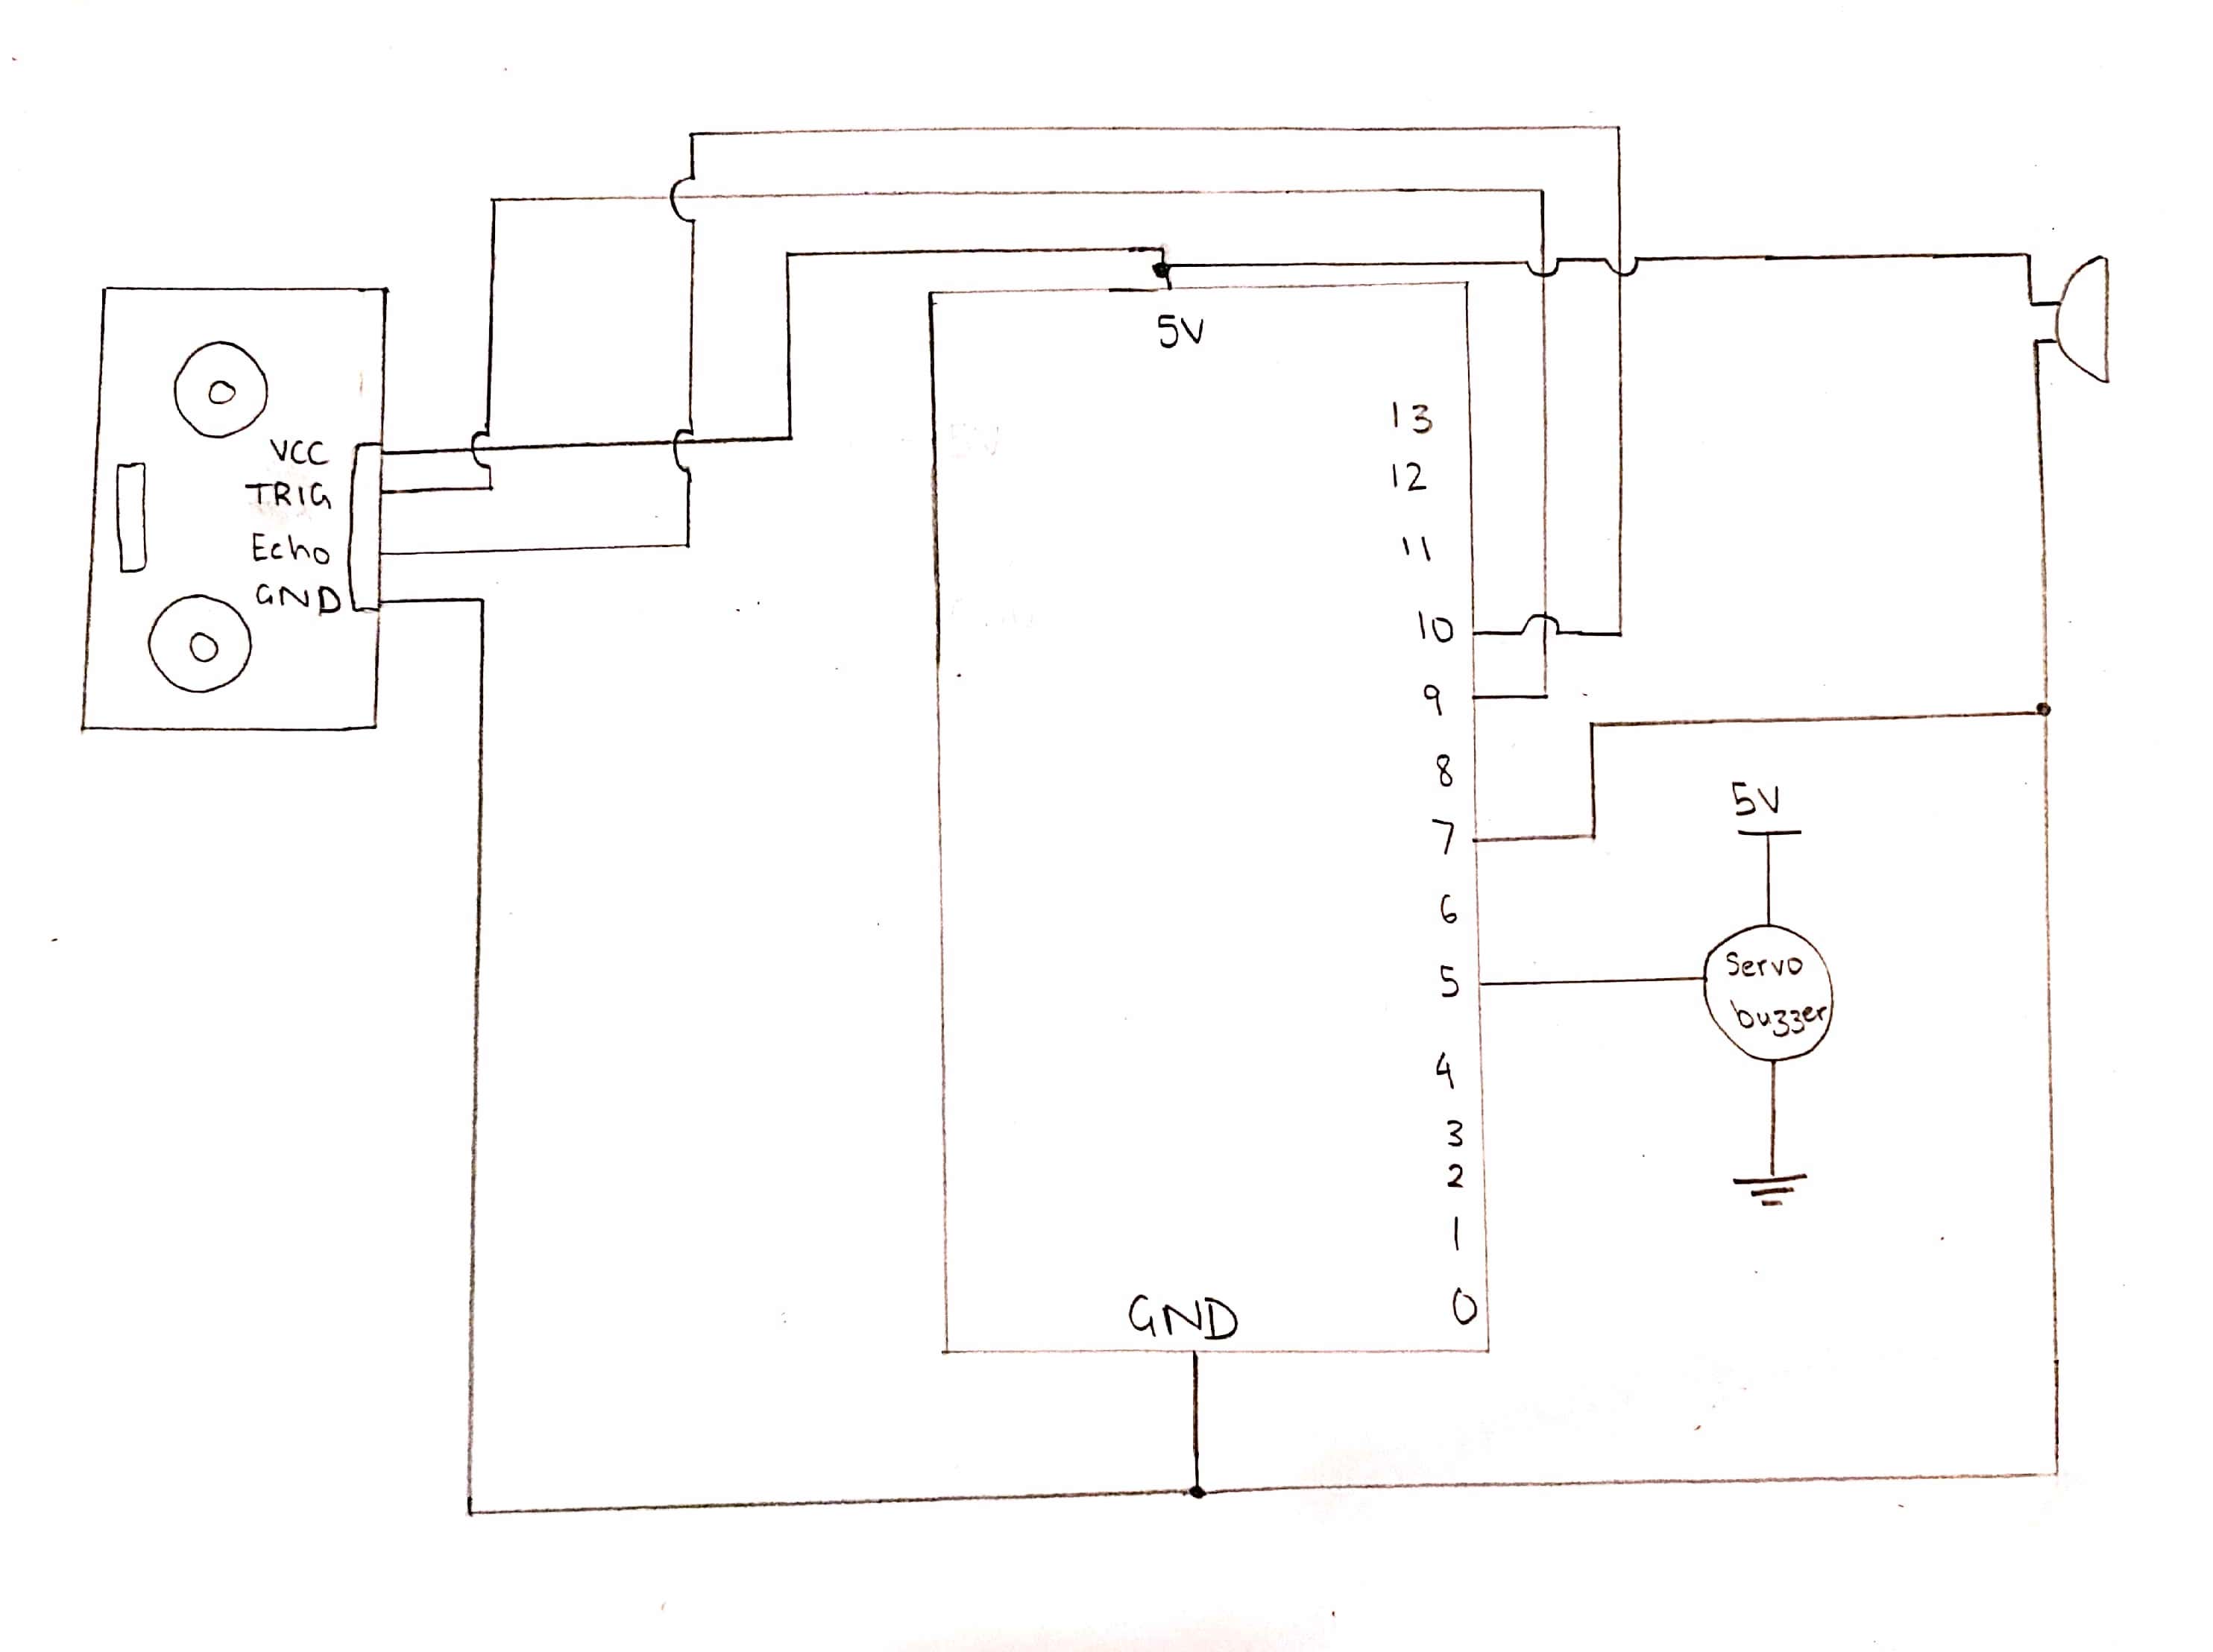 5V
VCC
TRIG
Echo
GND
13
12
11
10
9
8
7
6
5
4
3
2
1
0
GND
5V
Servo
buzzer